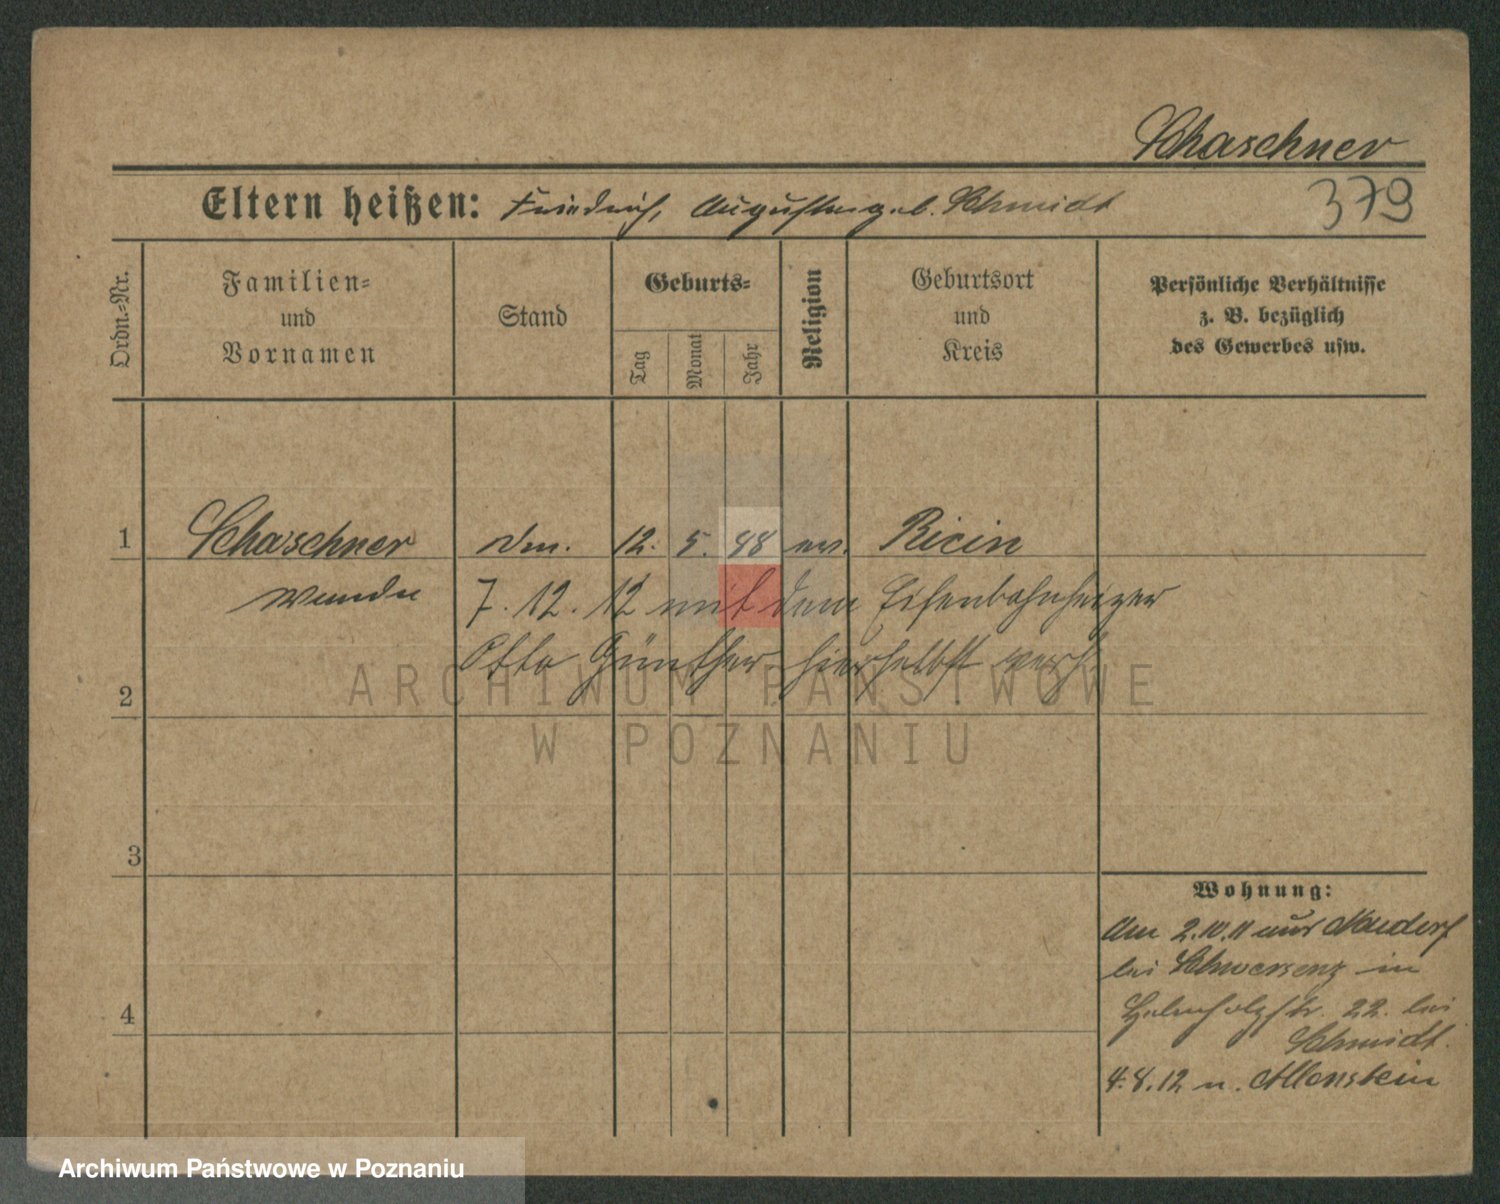 Schaschner
Eltern heißen: Friedrich, Auguste geb. Schmidt
379
Ordn.-Nr.
Familien-
und
Vornamen
Stand
Geburts-
Tag
Monat
Jahr
Religion
Geburtsort
und
Kreis
Persönliche Verhältnisse
z. B. bezüglich
des Gewerbes usw.
1 Schaschner 12. 5. 88 ev. Ricin
7. 12. 12 mit dem Eisenbahnheizer
Otto Günther hierselbst verh
2
3
4
Wohnung:
Am 2.10.11 aus Neudorf
bei Schwersenz in
22. bei
Schmidt.
4.8.12 n. Allenstein
ARCHIWUM PAŃSTWOWE
W POZNANIU
Archiwum Państwowe w Poznaniu